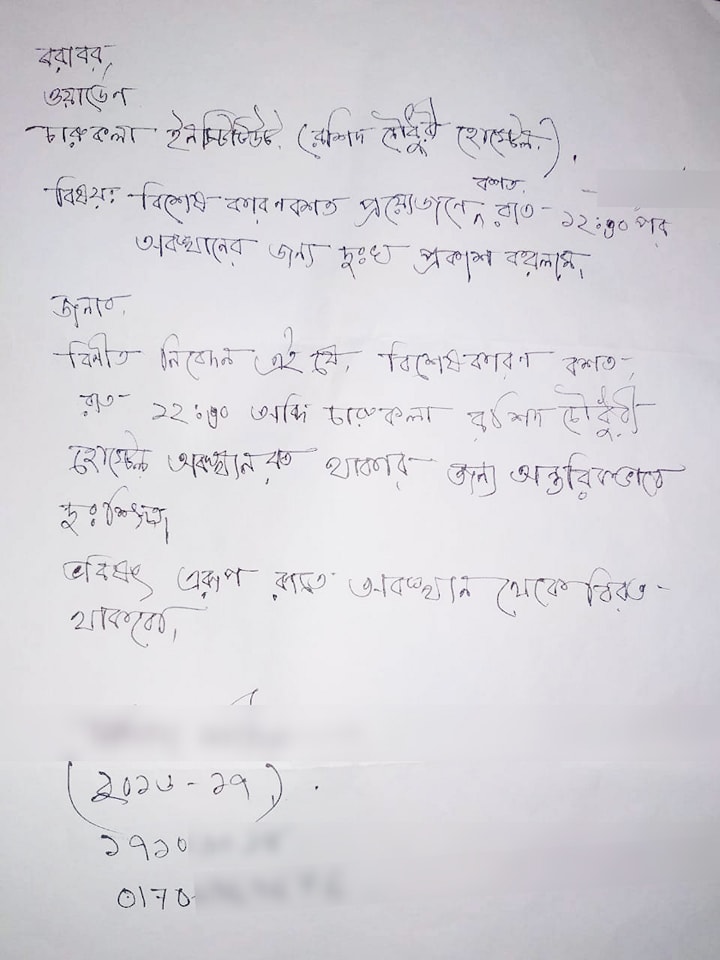 বরাবর,
ওয়ার্ডেন
চারুকলা ইনস্টিটিউট. (রশিদ চৌধুরী হোস্টেল.).
বশত.
বিষয়: বিশেষ কারণবশত প্রয়োজনে রাত- ১২:৩০ পর
অবস্থানের জন্য দুঃখ প্রকাশ করলাম,
জনাব,
বিনীত নিবেদন এই যে, বিশেষকারণ বশত,
রাত- ১২:৩০ অব্দি চারুকলা রশিদ চৌধুরী
হোস্টেল অবস্থানরত থাকার জন্য আন্তরিকভাবে
দুঃখিত,
ভবিষৎ এরূপ কাজে অবস্থান থেকে বিরত-
থাকবো,
(২০১৬ - ১৭).
১৭১০
0170